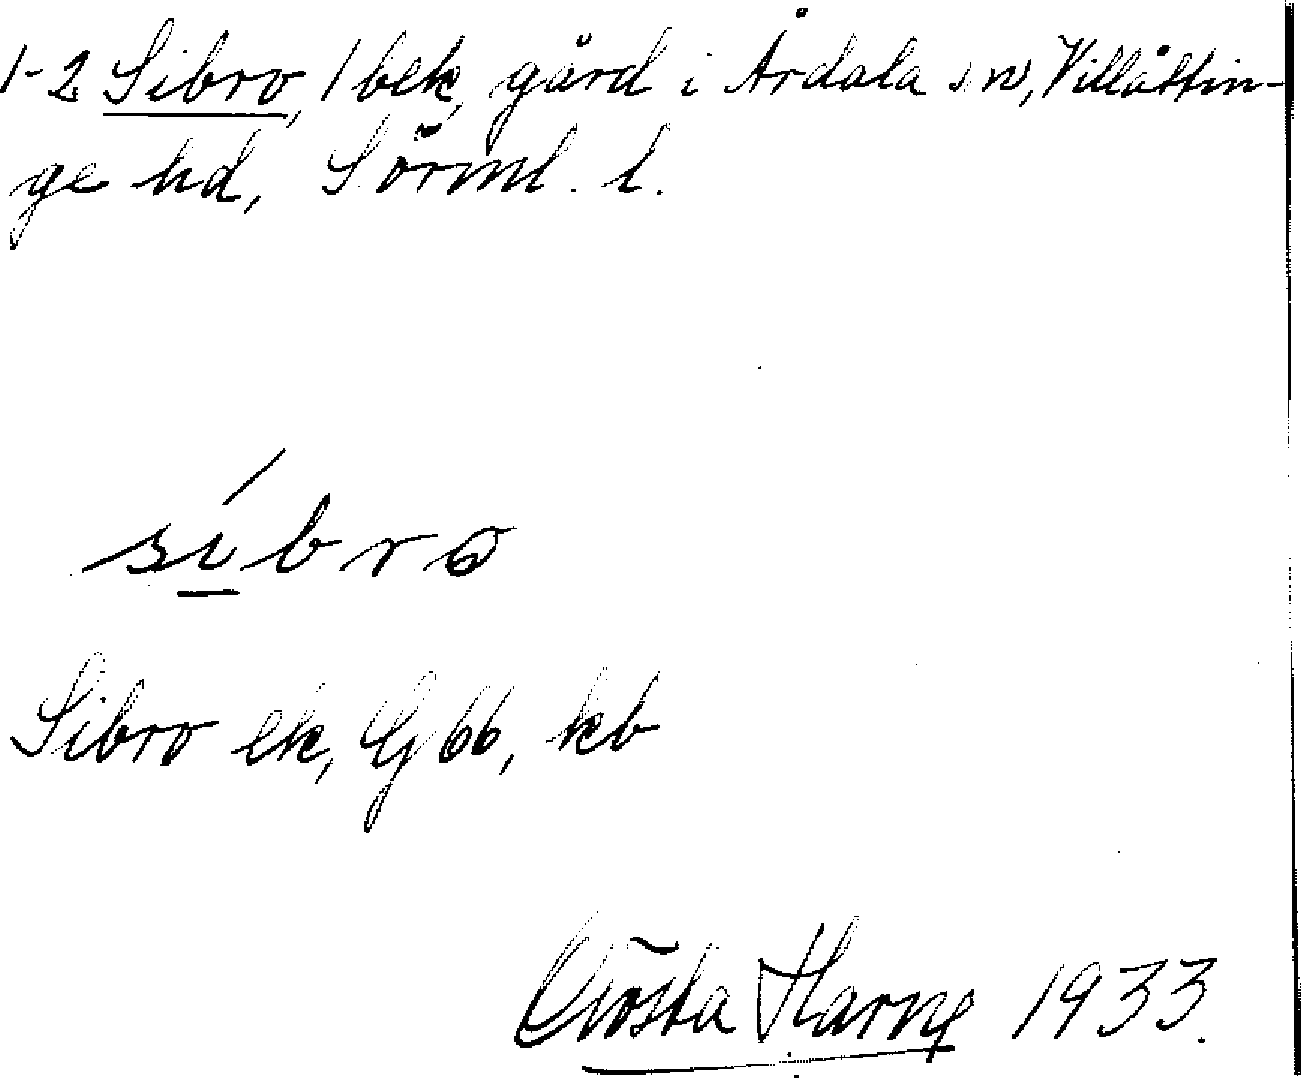 1-2 Sibro, 1 bek, gård i Årdala sn, Villåttin-
ge hd, Sörml. l.
síbro
Sibro ek, G 66, kb
Gösta Harne 1933.